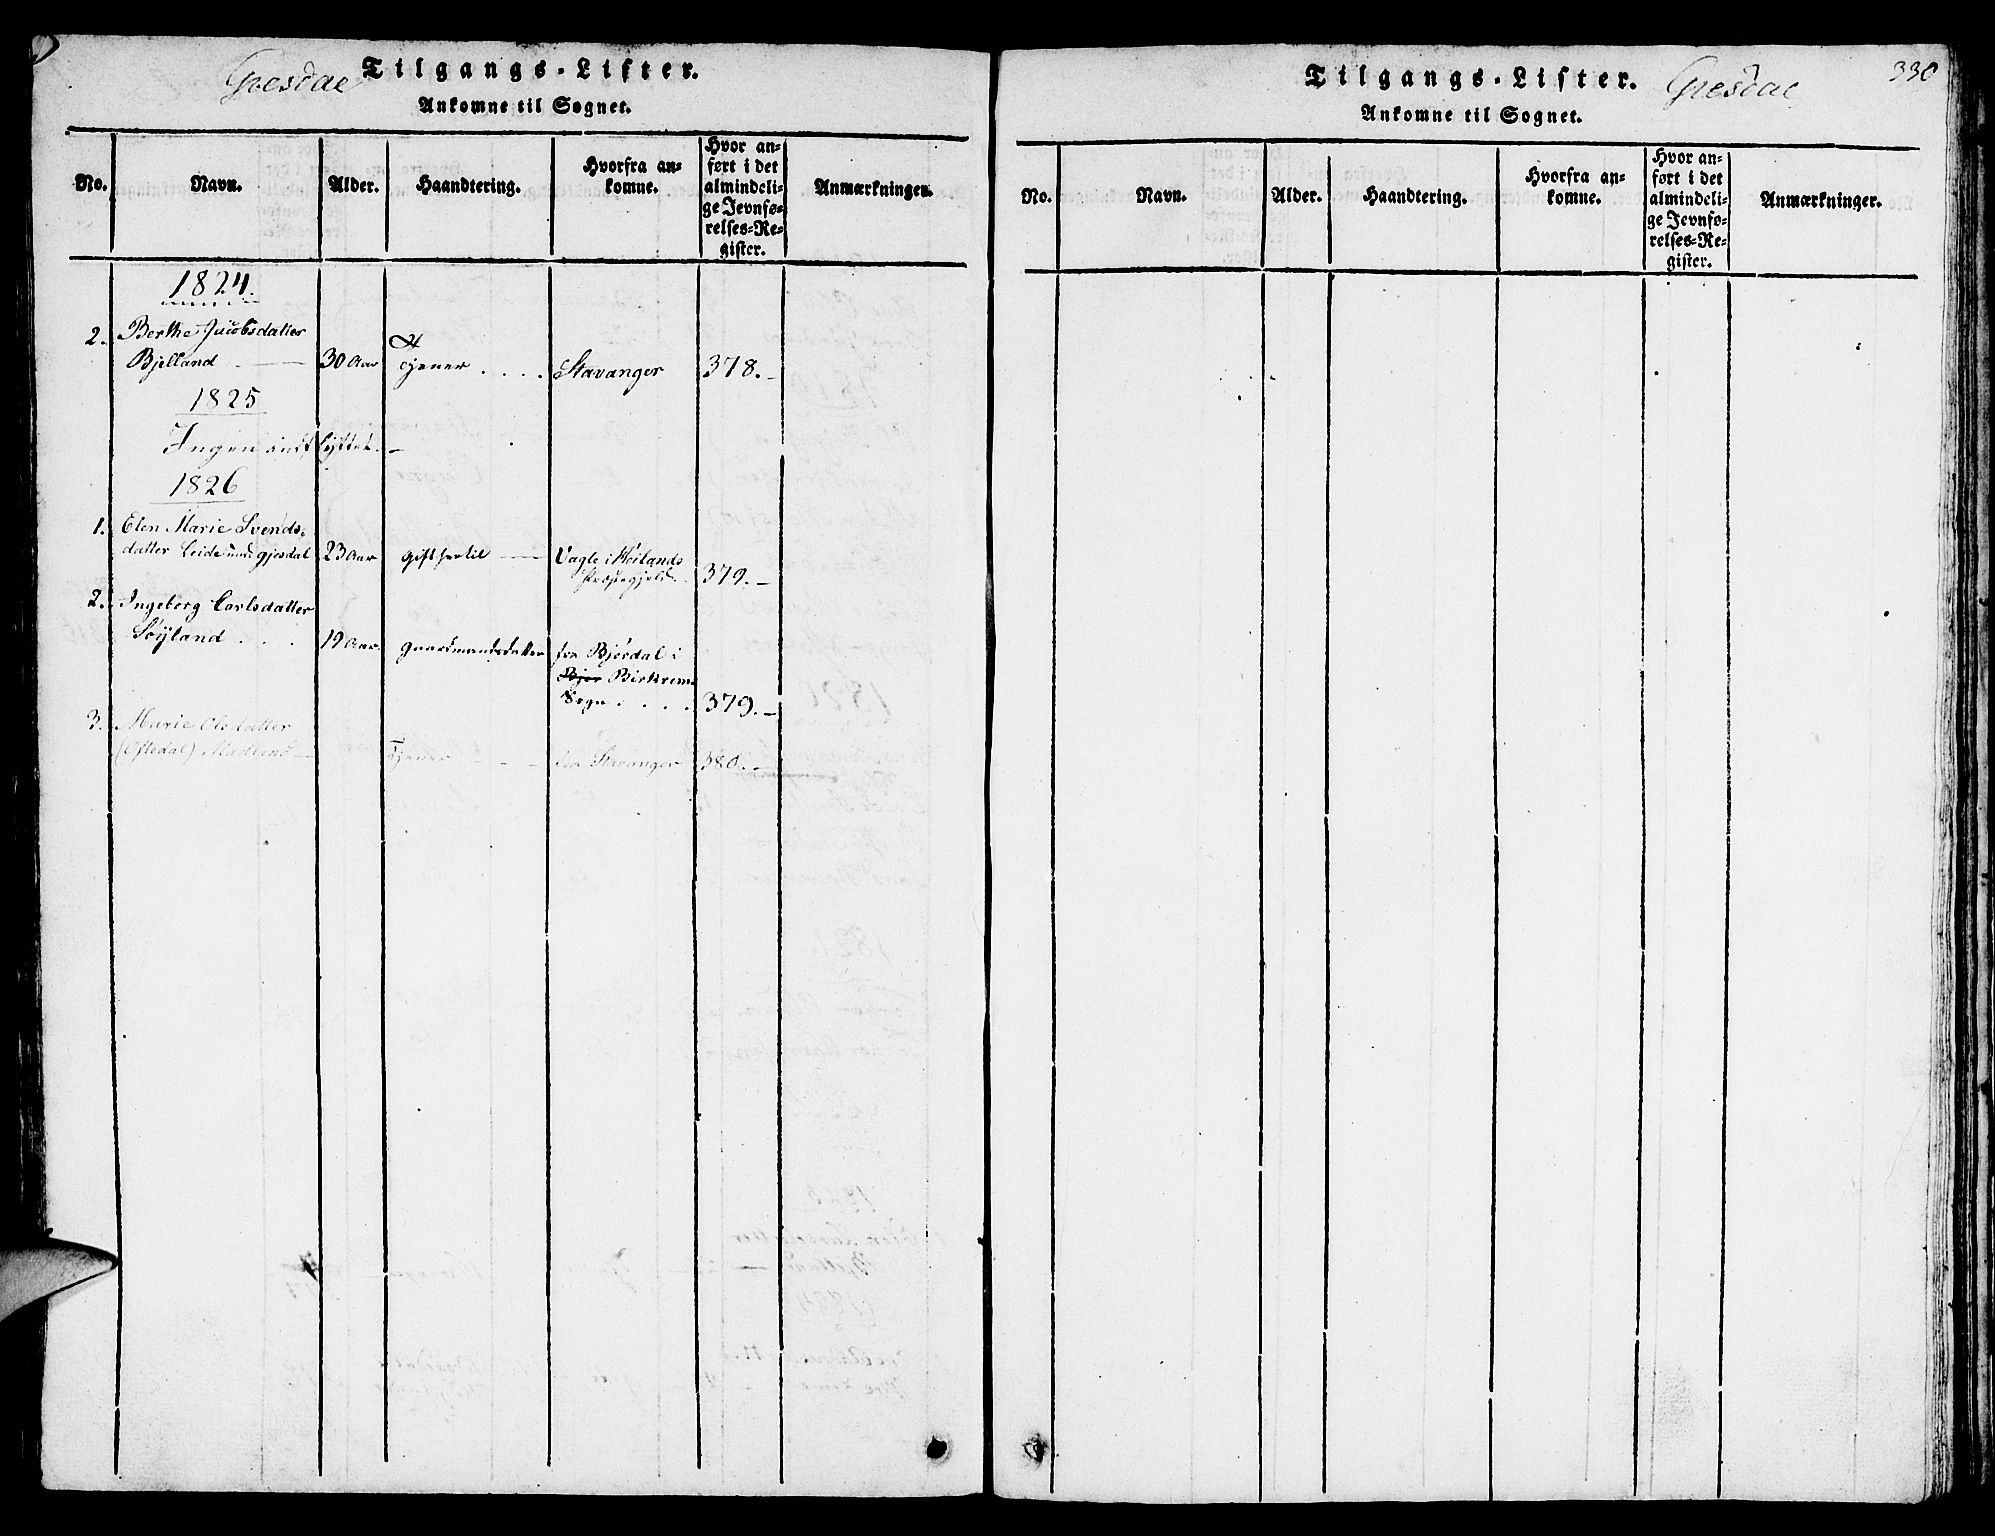 Gjesdal
Tilgangs-Lister.
Ankomne til Sognet.
No. Navn. Alder. Haandtering. Hvorfra an-
komne. Hvor an-
ført i det
almindeli-
ge Jevnfø-
relses-Re-
gister. Anmærkninger.
1824.
2. Berthe Jacobsdatter
Bjelland 30 Aar tjener .... Stavanger 378.-
1825
Ingen indflyttet.-
1826
1. Elen Marie Svends-
datter gjesdal 23 Aar gift hertil Vagle i Høilands
Præstegjeld 379.-
2. Ingeborg Carlsdatter
Søyland ... 19 Aar. gaardmandsdatter fra Bjørdal i
Bjer Birkrem
Sogn .... 379.-
3. Marie Olsdatter
(Oftedal) Madland Tjener - - fra Stavanger 380.-
Tilgangs-Lister.
Gjesdal
330
Ankomne til Sognet.
No. Navn. Alder. Haandtering. Hvorfra an-
komne. Hvor an-
ført i det
almindeli-
ge Jevnfø-
relses-Re-
gister. Anmærkninger.